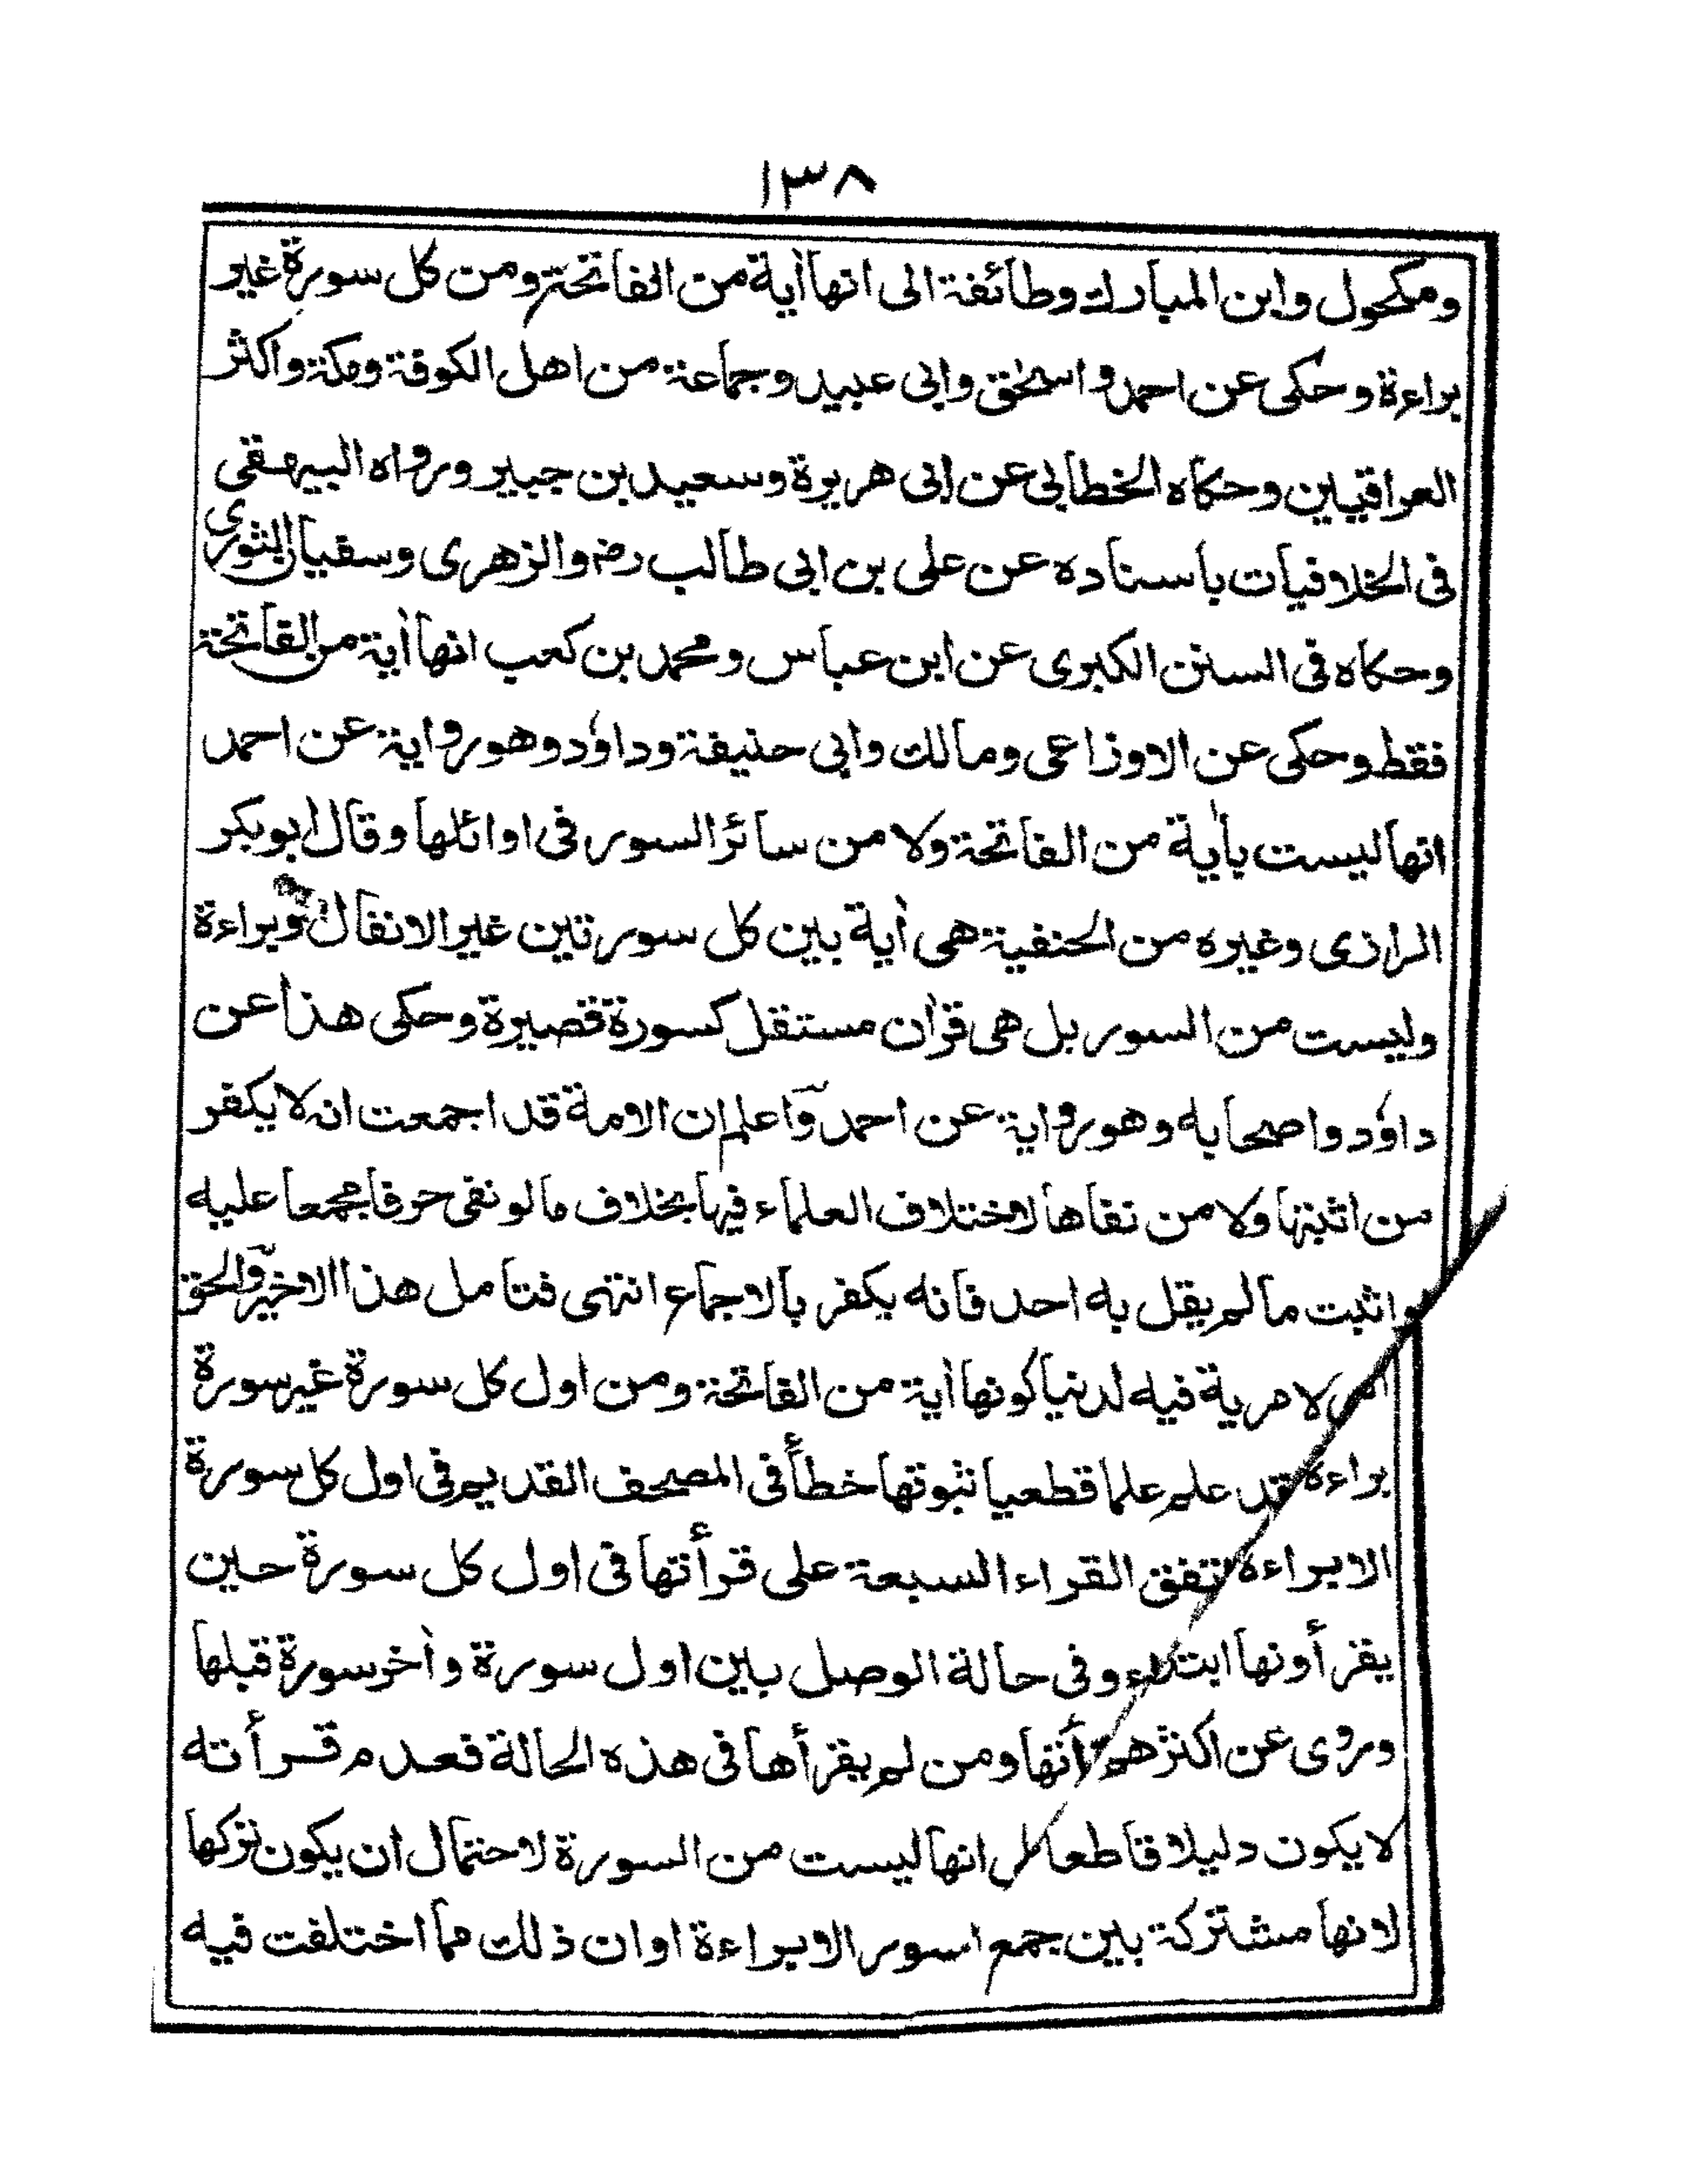 ١٣٨
ومكحول وابن المبارك وطائفة الى انها أية من الفاتحة ومن كل سورة غير
براءة وحكى عن احمد واسحٰق وابى عبيد وجماعة من اهل الكوفة ومكة واكثر
العراقيين وحكاه الخطابى عن ابى هريرة وسعيد بن جبير ورواه البيهقى
فى الخلافيات باسناده عن على بن ابى طالب رضـ والزهرى وسفيان الثورى
وحكاه فى السنن الكبرى عن ابن عباس ومحمد بن كعب انها أية من الفاتحة
فقط وحكى عن الاوزاعى ومالك وابى حنيفة وداؤد وهو رواية عن احمد
انها ليست بأية من الفاتحة ولا من سائر السور فى اوائلها وقال ابو بكر
الرازى وغيره من الحنفية هى أية بين كل سورتين غير الانفال وبراءة
وليست من السور بل هى قرأن مستقل كسورة قصيرة وحكى هذا عن
داؤد واصحابه وهو رواية عن احمد واعلم ان الامة قد اجمعت انه لا يكفر
من اثبتها ولا من نفاها لاختلاف العلماء فيها بخلاف ما لو نفى حرفا مجمعا عليه
او اثبت ما لم يقل به احد فانه يكفر بالاجماع انتهى فتامل هذا الاخير والحق
لا مرية فيه لدنيا كونها أية من الفاتحة ومن اول كل سورة غير سورة
براءة قد علم علما قطعيا ثبوتها خطأ فى المصحف القديم فى اول كل سورة
الا براءة اتفق القراء السبعة على قرأتها فى اول كل سورة حين
يقرأونها ابتداء وفى حالة الوصل بين اول سورة وأخر سورة قبلها
وروى عن اكثرهم ومن لم يقرأها فى هذه الحالة فعدم قرأته
لا يكون دليلا قاطعا انها ليست من السورة لاحتمال ان يكون تركها
لانها مشتركة بين جمع اسور الا براءة او ان ذلك مما اختلفت فيه